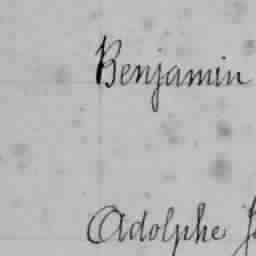 Benjamin
Adolphe